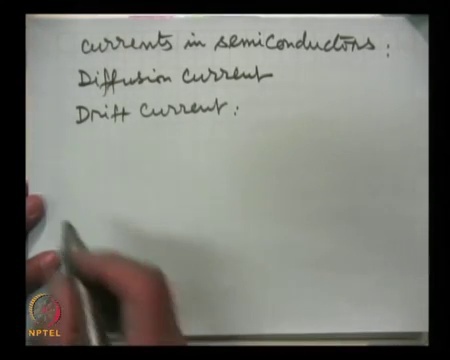 currents in semiconductors :
Diffusion current
Drift current :
NPTEL